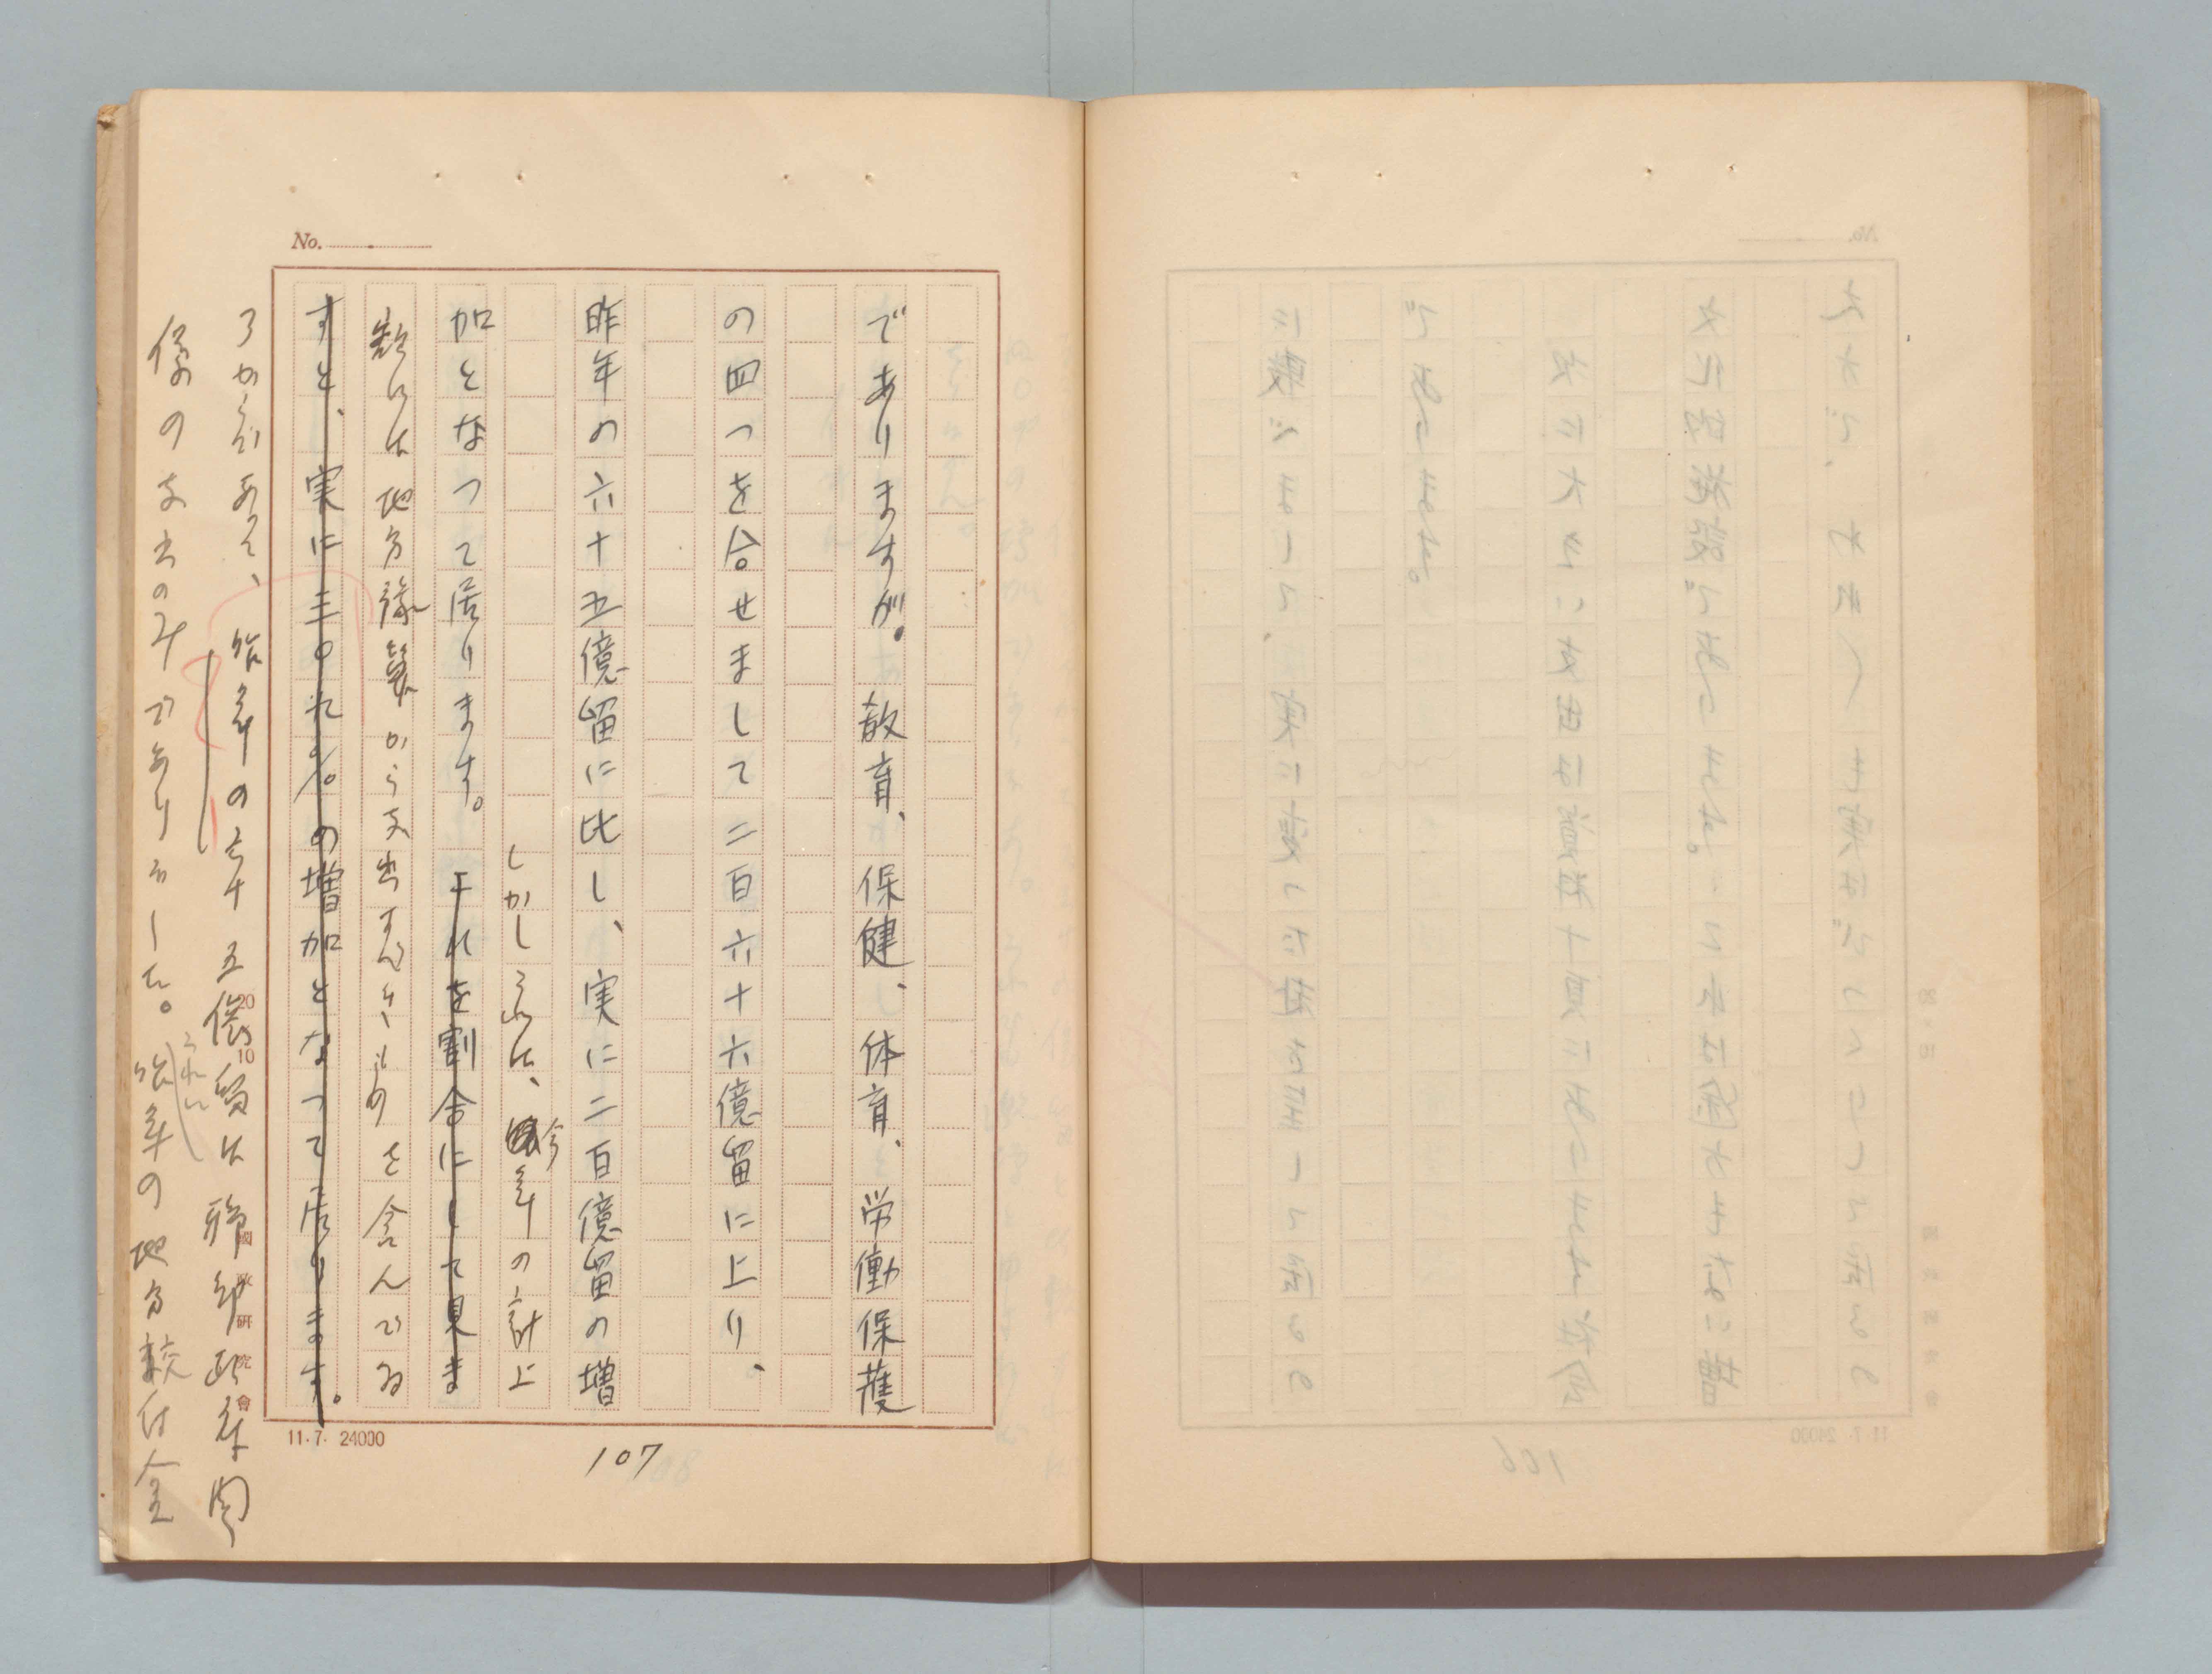 No.
でありますが。教育、保健、体育、労働保護
の四つを合せまして二百六十六億留に上り、
昨年の六十五億留に比し、実に二百億留の増
しかしこれは、今年の計上
加となつて居ります。これを割合にして見ま
額には地方予算から支出すべきものを含んでゐ
すと、実に三〇九%。の増加となつて居ります。
るからであつて、昨年の六十五億留は聯邦政府関
係の支出のみでありました。昨年の地方交付金
20 10
國政研究會
11.7. 24000
107